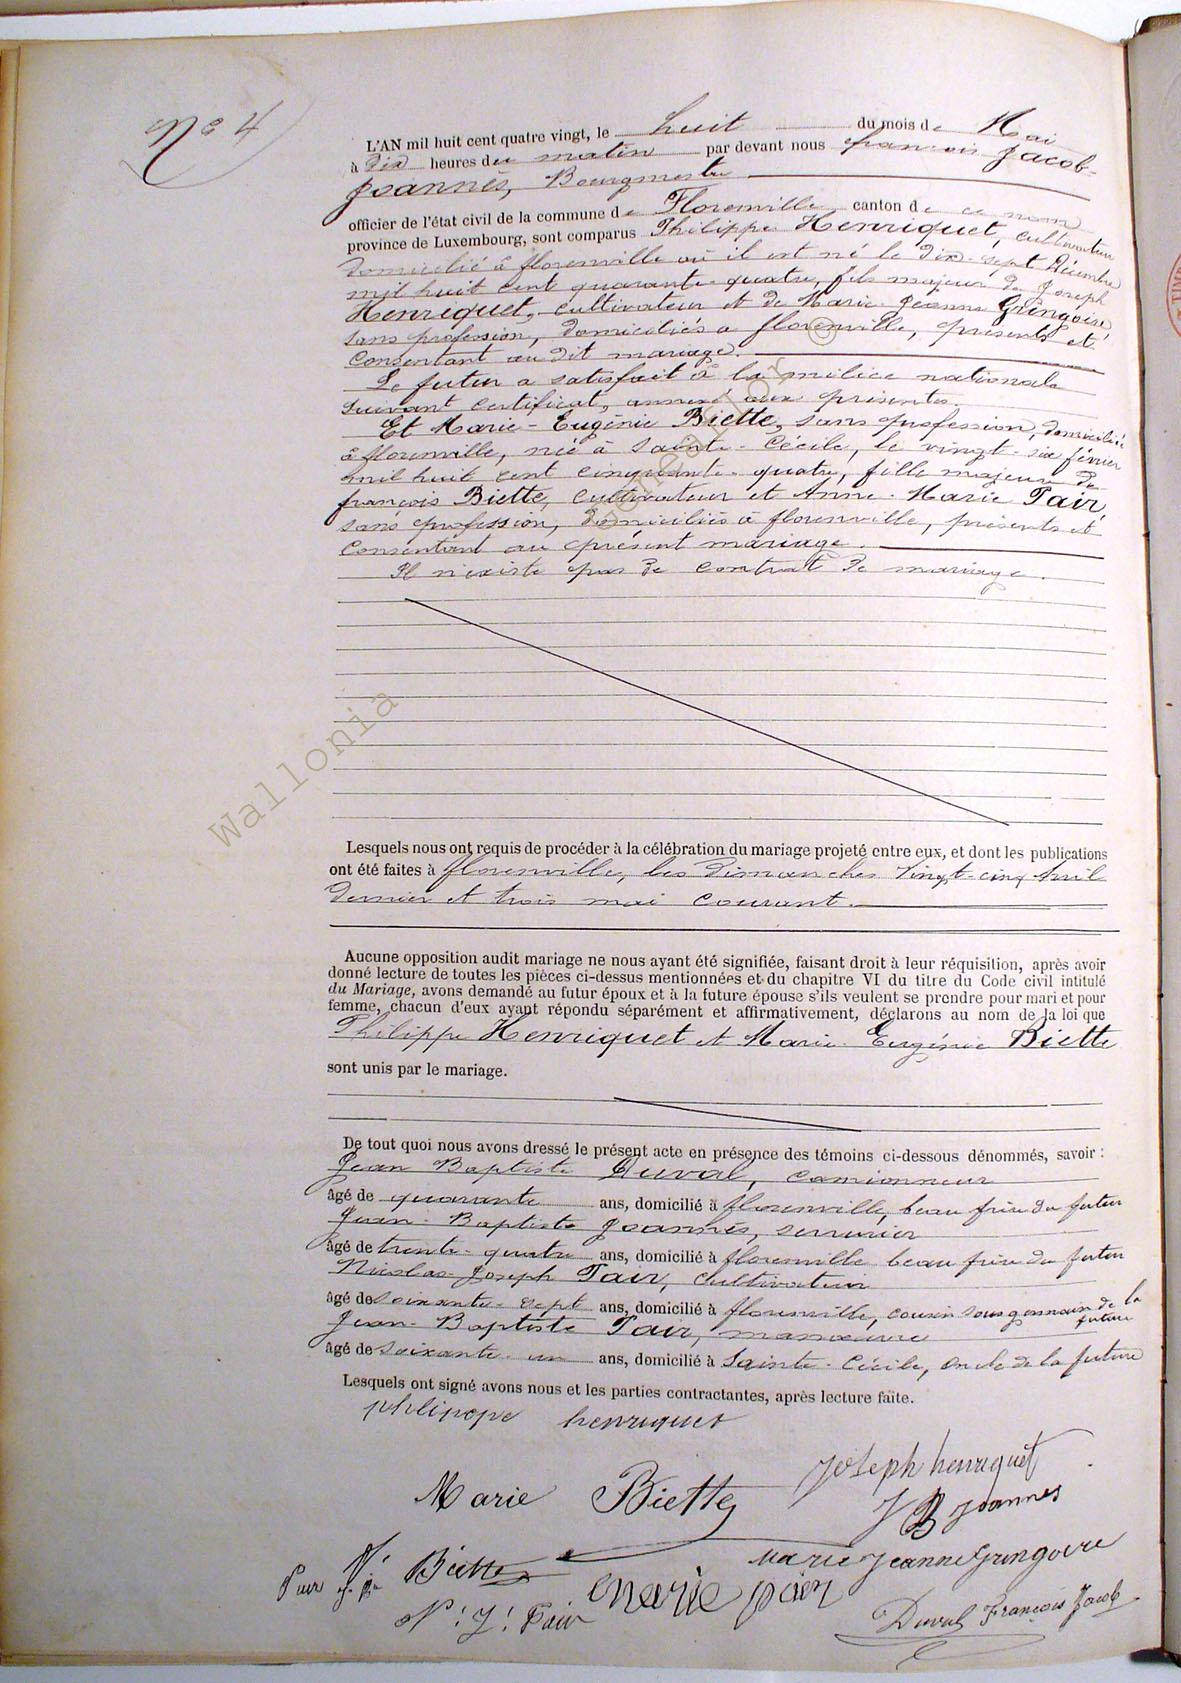 N° 4
L'AN mil huit cent quatre vingt, le huit du mois de Mai
à dix heures du matin par devant nous françois Jacob-
Joannès, Bourgmestre
officier de l'état civil de la commune de Florenville canton de ce nom
province de Luxembourg, sont comparus Philippe Henriquet, cultivateur
domicilié à florenville où il est né le dix-sept Décembre
mil huit cent quarante-quatre, fils majeur de Joseph
Henriquet, cultivateur et de Marie-Jeanne Gringoire,
sans profession, domiciliés à florenville, présents et
consentant au dit mariage.
Le futur a satisfait à la milice nationale
suivant certificat, annexé aux présentes.
Et Marie-Eugénie Biette, sans profession, domiciliée
à florenville, née à Sainte-Cécile, le vingt-six février
mil huit cent cinquante-quatre, fille majeure de
françois Biette, cultivateur et Anne-Marie Pair,
sans profession, domiciliés à florenville, présents et
consentant au présent mariage.
Il n'existe pas de contrat de mariage.
Wallonia Généalogie ©
Lesquels nous ont requis de procéder à la célébration du mariage projeté entre eux, et dont les publications
ont été faites à florenville, les dimanches vingt-cinq Avril
dernier et trois mai courant.
Aucune opposition audit mariage ne nous ayant été signifiée, faisant droit à leur réquisition, après avoir
donné lecture de toutes les pièces ci-dessus mentionnées et du chapitre VI du titre du Code civil intitulé
du Mariage, avons demandé au futur époux et à la future épouse s'ils veulent se prendre pour mari et pour
femme, chacun d'eux ayant répondu séparément et affirmativement, déclarons au nom de la loi que
Philippe Henriquet et Marie-Eugénie Biette
sont unis par le mariage.
De tout quoi nous avons dressé le présent acte en présence des témoins ci-dessous dénommés, savoir :
Jean Baptiste Duval, camionneur
âgé de quarante ans, domicilié à florenville, beau frère du futur
Jean-Baptiste Joannès, serrurier
âgé de trente-quatre ans, domicilié à florenville beau frère du futur
Nicolas-Joseph Pair, cultivateur
âgé de soixante-sept ans, domicilié à florenville, cousin sous germain de la
future
Jean-Baptiste Pair, manœuvre
âgé de soixante-un ans, domicilié à Sainte-Cécile, oncle de la future
Lesquels ont signé avons nous et les parties contractantes, après lecture faite.
philippe henriquet
Joseph henriquet
Marie Biette
J B Joannes
Marie Jeanne Gringoire
Pair J. B. Biette
Marie pair
N. J. Pair
Duval François Jacob